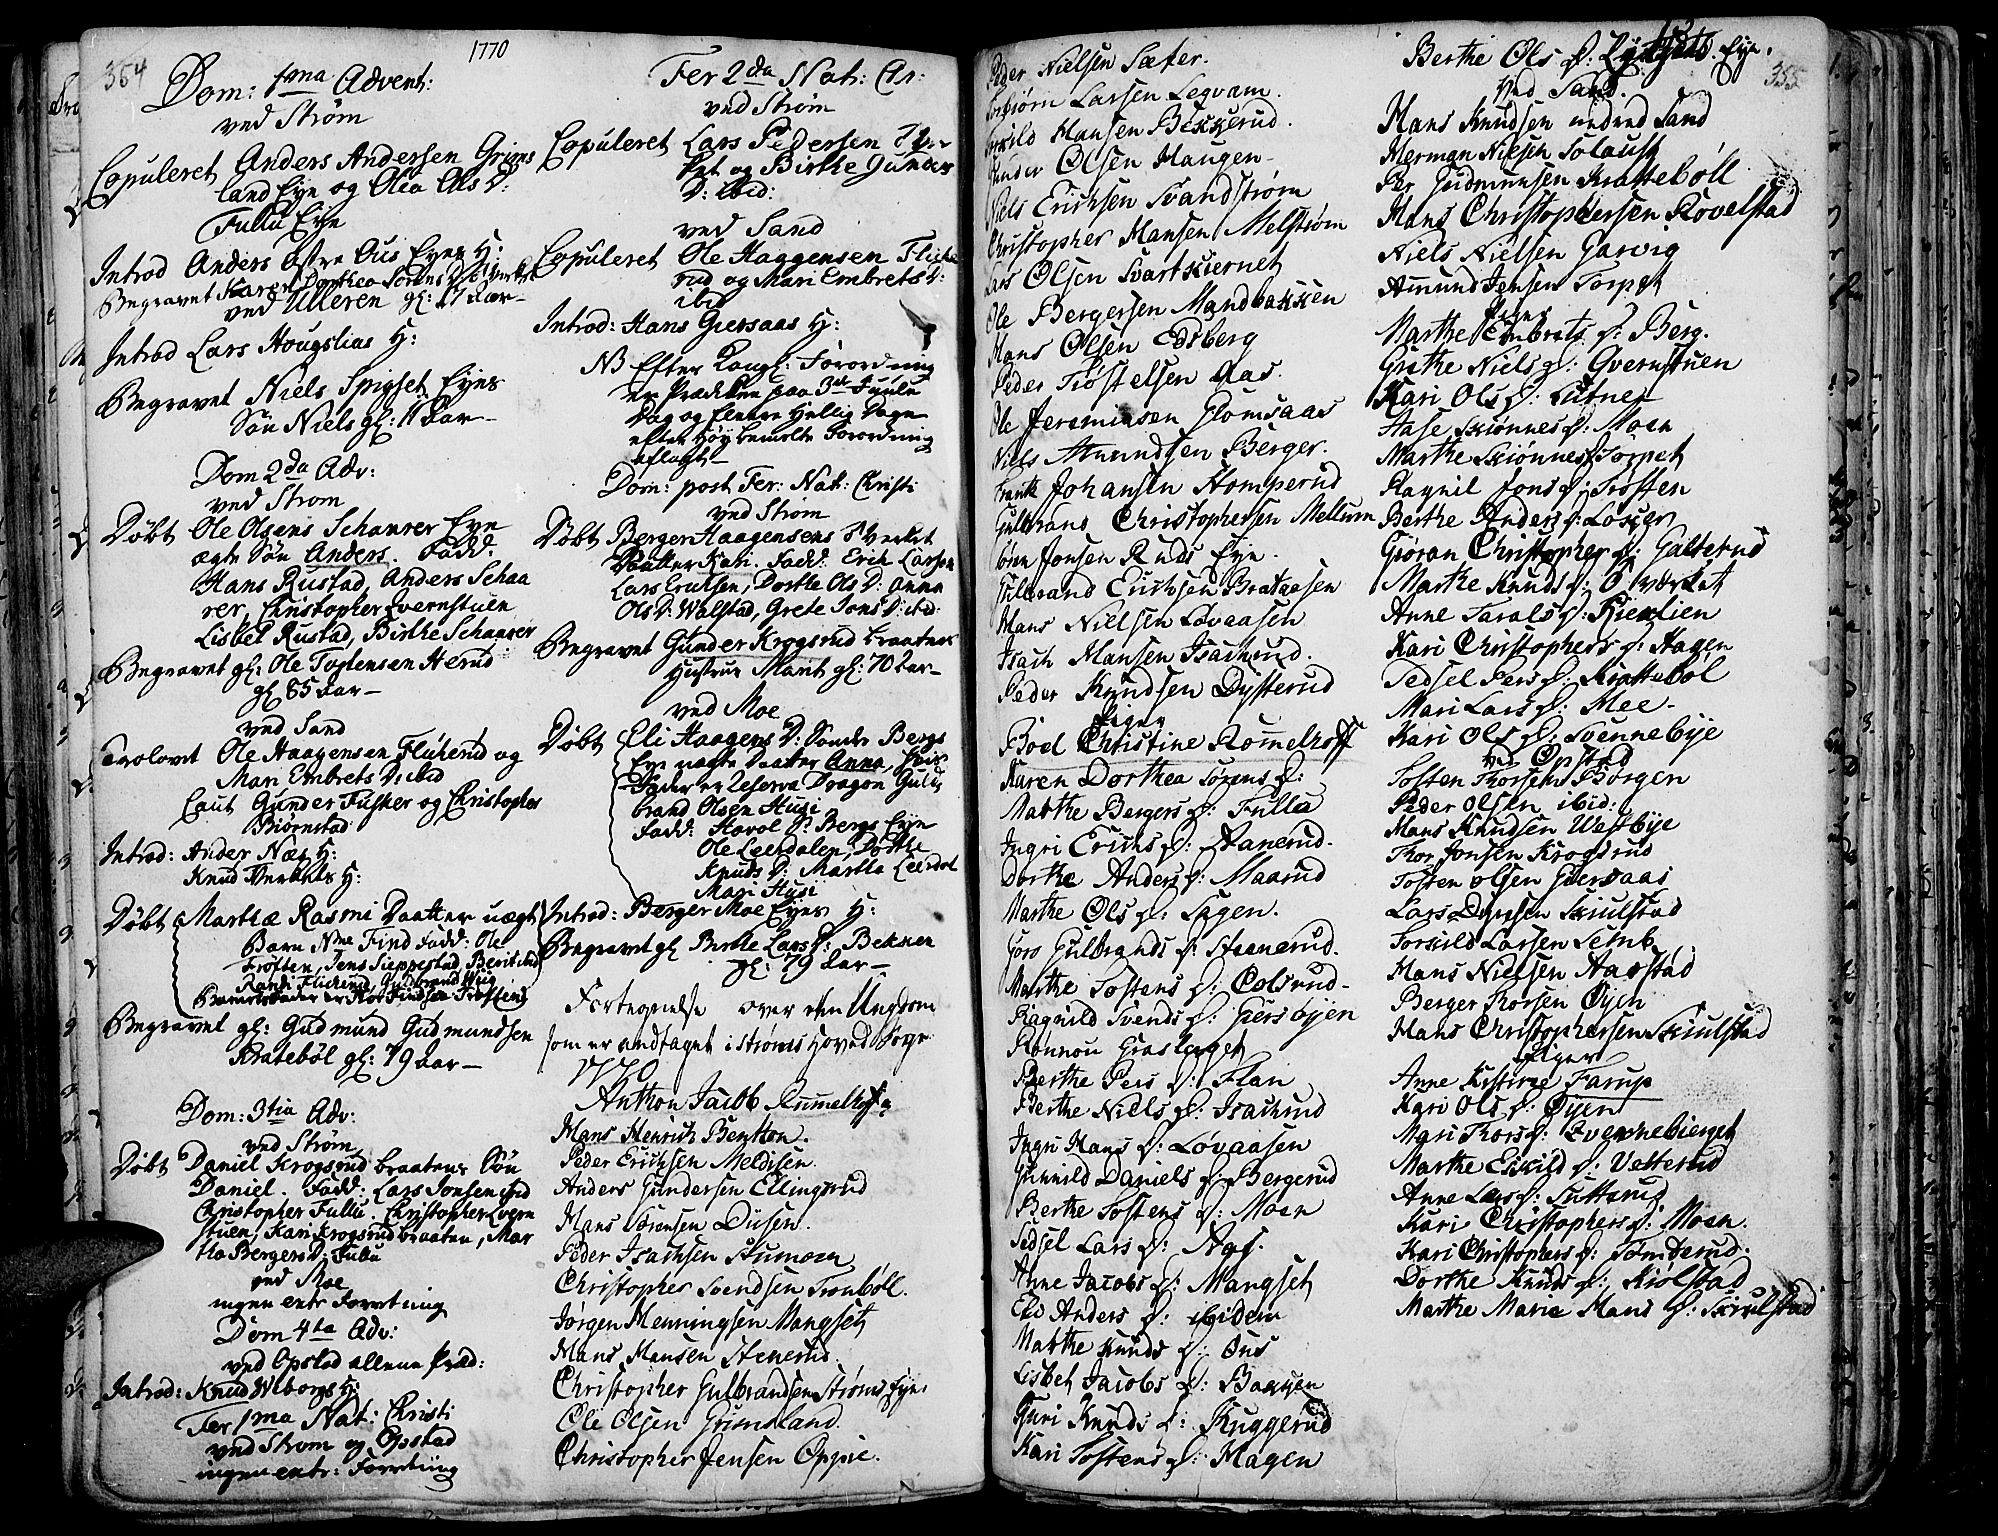 354
1770
Dom: 1ma Advent:
ved Strøm
Copuleret Anders Andersen Grims
land Eye og Olea Ols D:
Fullu Eye
Introd Anders Østre Ous Eyes H:
Begravet Karen Dorthea Sørens D:
ved Ulleren gl: 17 Aar
Introd Lars Hougslias H:
Begravet Niels Spigset Eyes
Søn Niels gl: 11 Aar
Dom 2da Adv:
ved Strøm
Døbt Ole Olsens Schaarer Eye
ægte Søn Anders. Fadd:
Hans Rustad, Anders Schaa
rer, Christopher Evernstuen
Lisbet Rustad, Birthe Schaarer
Begravet gl: Ole Tostensen Herud
gl 85 Aar
ved Sand
Trolovet Ole Haagensen Flicherud og
Mari Embrets D: ibid
Caut Gunder Fusker og Christopher
Biørnstad
Introd: Ander Næs H:
Knud Verkets H:
Døbt Marthæ Rasmi Daatter uægte
Barn Nne Find Fadd: Ole
Trøften, Jens Sieppestad, Berit ibid
Randi Flicherud, Guldbrand Wiig
Barnefader er Thor Findsen Trøften
Begravet gl: Gudmund Gudmundsen
Kratebøl gl: 79 Aar
Dom: 3tia Adv:
ved Strøm
Døbt Daniel Krogsrud braatens Søn
Daniel. Fadd: Lars Jonsen ibid
Christopher Fullu, Christopher Evern
stuen, Kari Krogsrudbraaten, Mar
tha Bergers D: Fullu
ved Moe
ingen extr Forretning
Dom 4ta Adv:
ved Opstad allene Præd:
Introd: Knud Wiborgs H:
Fer 1ma Nat: Christi
ved Strøm og Opstad
ingen extr: Forretning
Fer 2da Nat: Chr:
ved Strøm
Copuleret Lars Pedersen
og Birthe Gunders
D: ibid:
ved Sand
Copuleret Ole Haggensen Fliche
rud og Mari Embrets D:
ibid
Introd: Hans Giersaas H:
NB Efter Kongl: Forordning
er Prædiken paa 3die Juule
Dag og fleere Hellig Dage
efter Høybemelte Forordning
aflagt
Dom: post Fer: Nat: Christi
ved Strøm
Døbt Berger Haagensens Verket
Daatter Kari. Fadd: Erik Larsen
Lars Eriksen, Dorthe Ols D: Anna
Ols D: Walstad, Grete Jons D: ibid:
Begravet Gunder Krogsrud braatens
Hustrue Marit gl: 70 Aar
ved Moe
Døbt Eli Haagens D: Søndre Bergs
Eye uægte Daatter Anna,
Fader er Reserva Dragon Guld
brand Olsen Husi
Fadd: Harol D: Bergs Eye
Ole Leerdalen, Dorthe
Knuds D: Martha Leerdal
Mari Husi
Introd: Berger Moe Eyes H:
Begravet gl Birthe Lars D: Bekken
gl: 79 Aar
Fortegnelse over den Ungdom
som er andtaget i Strøms Hoved Sogn
1770
Anthon Jacob Rummelhoff
Hans Henrich Bentzon.
Peder Erichsen Meldisen.
Anders Gundersen Ellingsrud
Hans Sørensen Disen.
Peder Isachsen Stumoen
Christopher Svendsen Tronbøll.
Jørgen Henningsen Mangset
Hans Hansen Stenerud
Christopher Gulbrandsen Strøms Eye
Ole Olsen Grimsland
Christopher Jensen Oppie.
Peder Nielsen Sæter.
Torbiørn Larsen Legvam.
Torkild Hansen Bekkerud.
Gunder Olsen Haugen
Niels Erichsen Svandstrøm
Christopher Hansen Melstrøm
Lars Olsen Svartkiernet
Ole Bergersen Mandbakken
Hans Olsen Edsberg
Peder Trøstelsen Aas.
Ole Jeremiasen Glomsaas
Niels Amundsen Berger.
Frantz Johansen Homperud
Gulbrand Christophersen Mellum
Søren Jonsen Ruds Eye.
Gulbrand Erichsen Brataasen
Hans Nielsen Løvaasen
Isach Hansen Isachrud.
Peder Knudsen Dysterud
Piger
Boel Christine Rommelhoff
Karen Dorthea Sørens D:
Marthe Bergers D: Fulla
Ingri Erichs D: Aanerud.
Dorthe Anders D: Maarud
Marthe Ols D: Sagen.
Goro Gulbrands D: Steenerud.
Marthe Tostens D: Colsrud
Ragnild Svends D: Gersbyen
Ronnou Graslaget
Berthe Pers D: Flan
Berthe Niels D: Isachrud
Ingri Hans D: Løvaasen
Gunnild Daniels D: Bergerud
Berthe Tostens D: Moen
Sedsel Lars D: Aas.
Anne Jacobs D: Mangset
Else Anders D: ibidem
Marthe Knuds D: Ous
Lisbet Jacobs D: Bakken
Guri Knuds D: Kuggerud
Kari Tostens D: Hagen
Berthe Ols D: Eye.
355
Ved Sand.
Hans Knudsen nedred Sand
Herman Nielsen Solaust
Per Gudmunsen Krattebøll
Hans Christophersen Skovelstad
Niels Nielsen Garvig
Amund Jensen Torpet
Piger
Marthe Embrets D: Berg.
Grethe Niels D: Qvernstuen
Kari Ols D: Lutner
Aase Skiønnes D: Moen
Marthe Skiønnes D: Torpet
Ragnil Jons D: Trøften
Berthe Anders D: Løsæter
Giøran Christopher D: Galterud
Marthe Knuds D: Ø værket
Anne Tarals D: Kiexlien
Kari Christophers D: Hagen
Sedsel Pers D: Krattebøl
Mari Lars D: Mee.
Kari Ols D: Svennebye
Ved Opstad
Tosten Thorsen Børgen
Peder Olsen ibid:
Hans Knudsen Westbye
Thor Jonsen Krogsrud
Tosten Olsen Giersaas
Lars Skiulstad
Torkild Larsen Setnb
Hans Nielsen Aarstad
Berger Thorsen Øyen
Hans Christophersen Skiulstad
Piger
Anne Kistine Farup
Kari Ols D: Øyen
Mari Thors D: Evenchebierget
Marthe Eskild D: Vetterud
Anne Lars D: Sutterud
Kari Christophers D: Moen.
Kari Christophers D: Tomterud.
Dorthe Knuds D: Kiølstad
Marthe Marie Hans D: Skiulstad